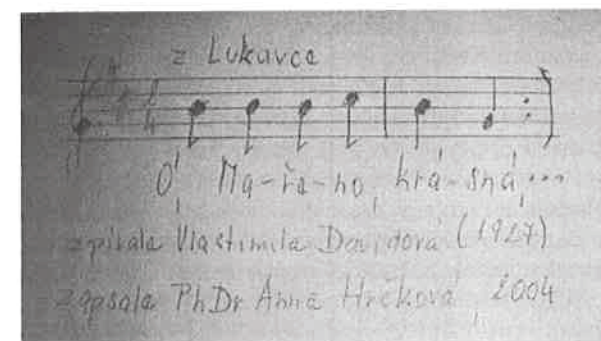 z Lukavce
2
4
Ó, Ma-ře-ho, krá-sná,...
zpívala Vlastimila Davidová (1927)
zapsala PhDr Anna Hrčková, 2004